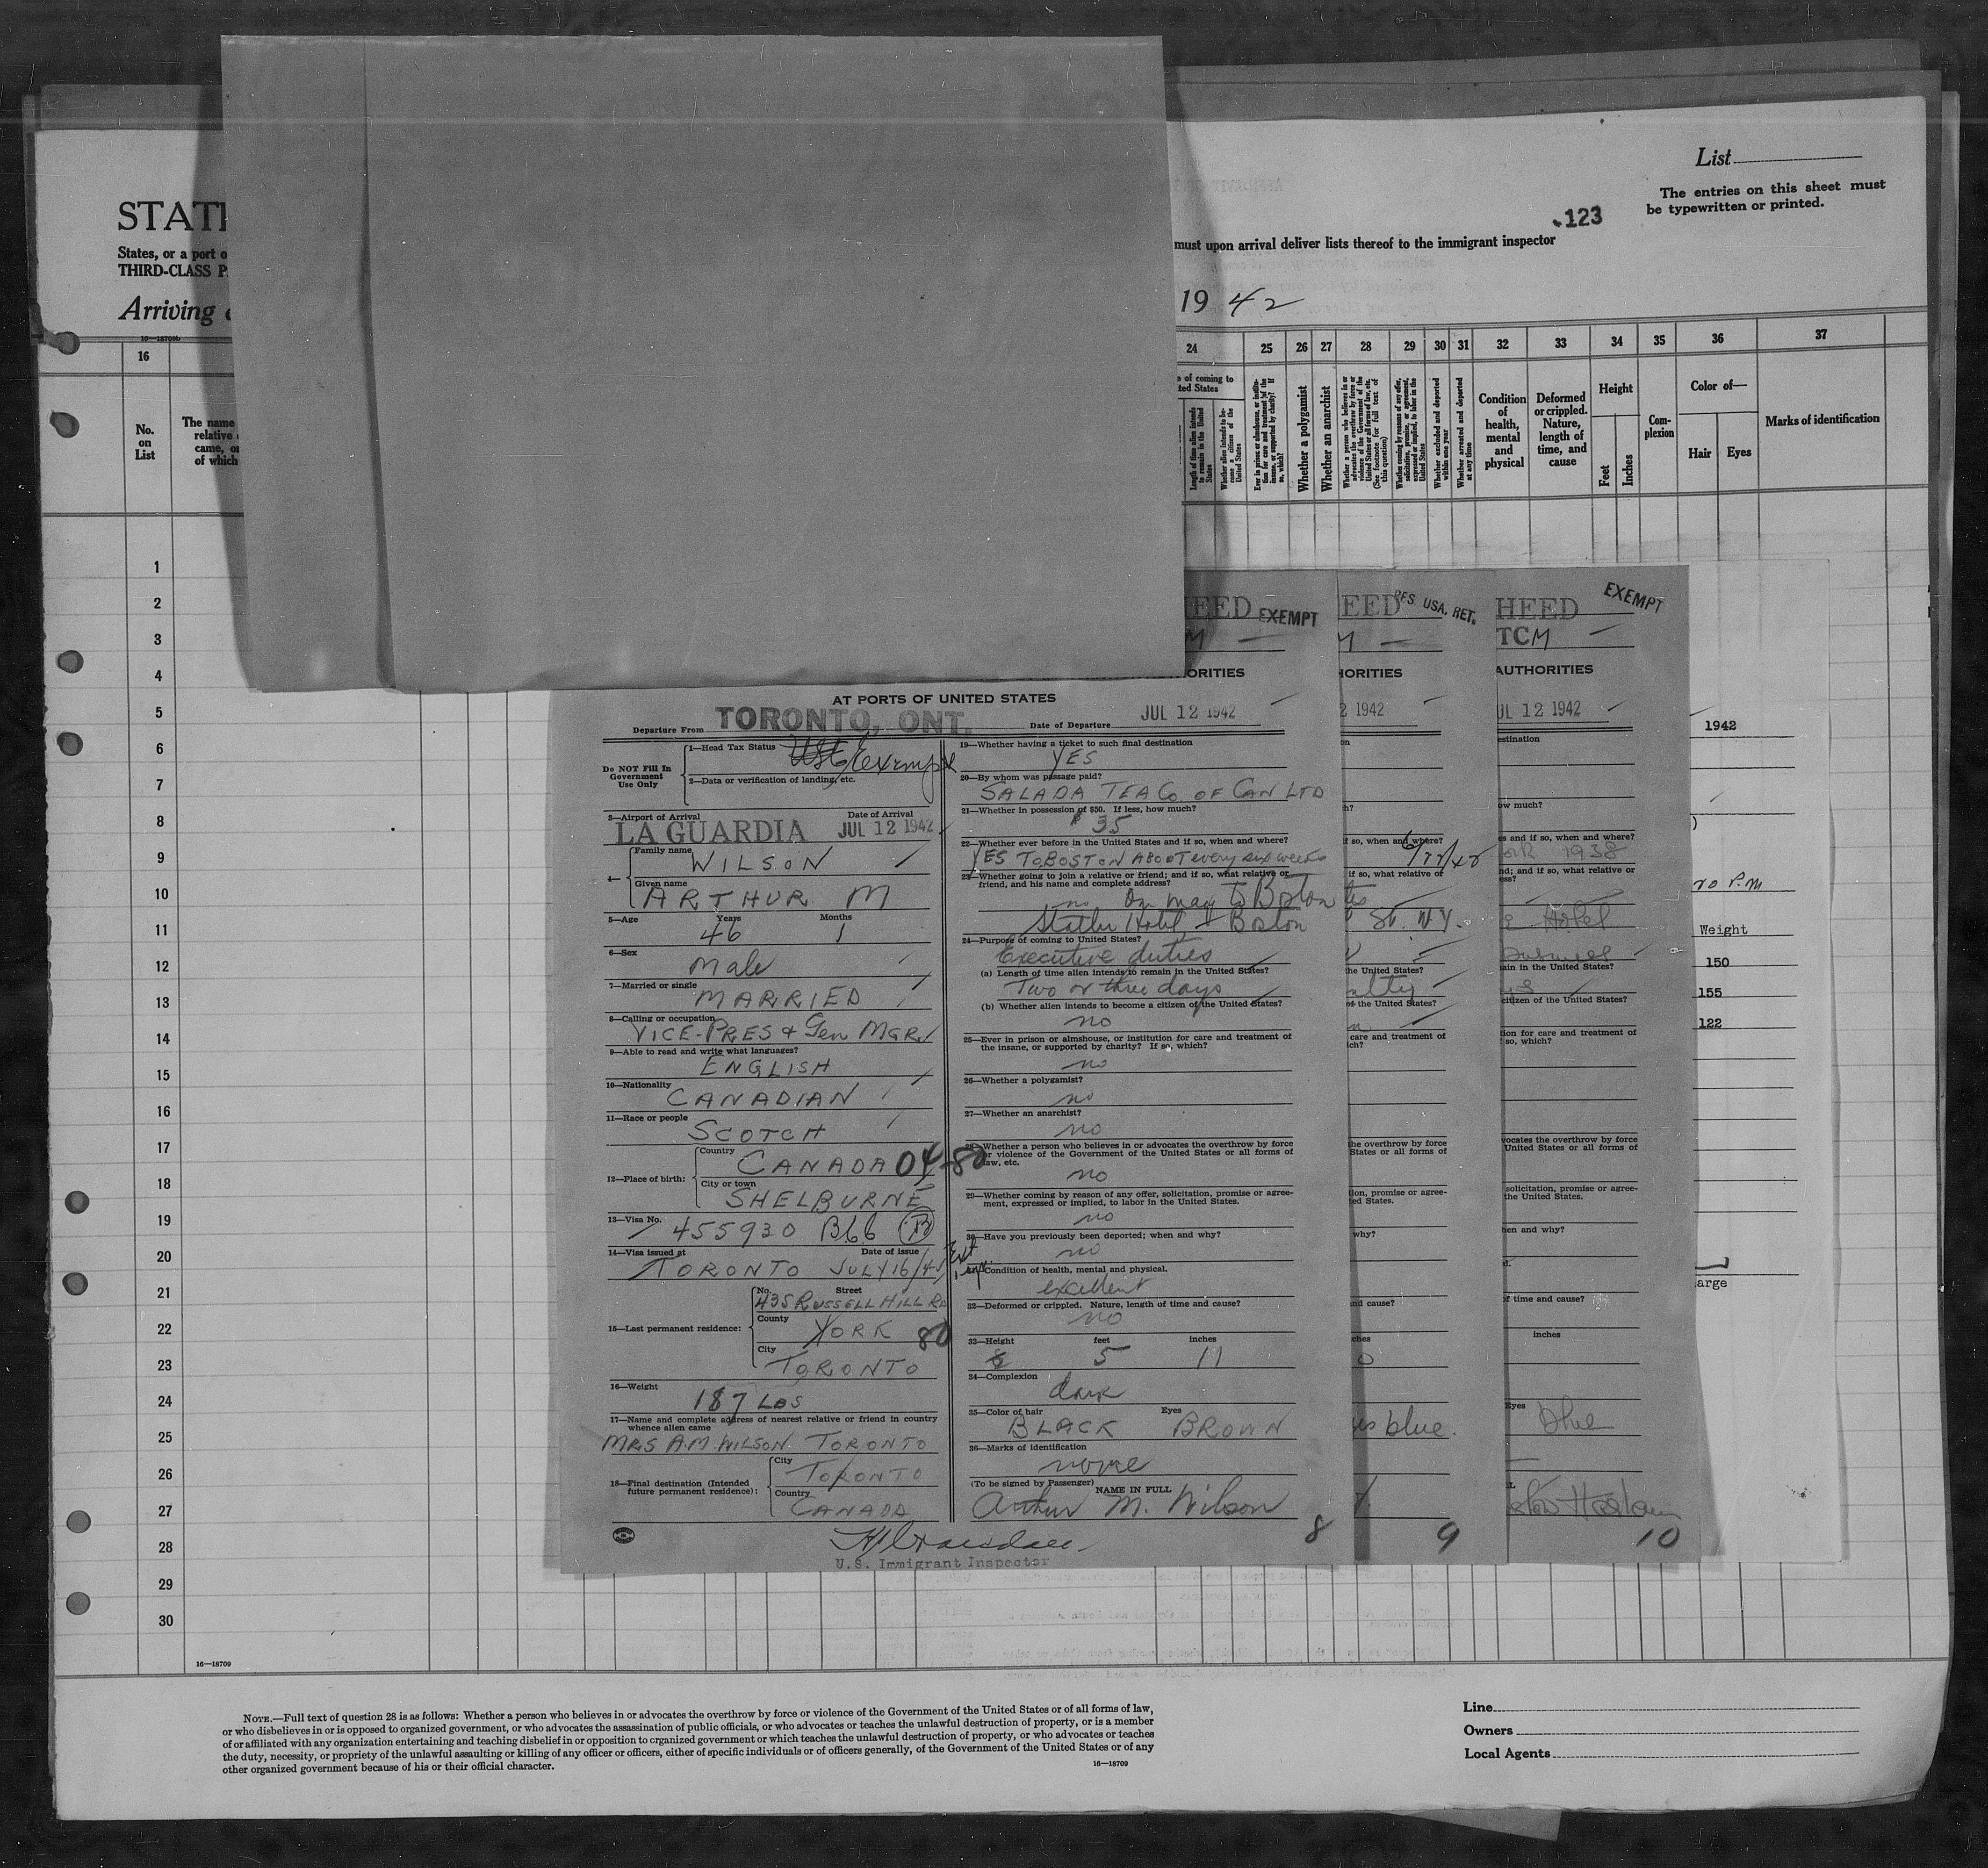 List
The entries on this sheet must
be typewritten or printed.
123
STATE
States, or a port o
must upon arrival deliver lists thereof to the immigrant inspector
THIRD-CLASS P
Arriving
19 42
16—18709b
16
24
25
26
27
28
29
30
31
32
33
34
35
36
37
No.
on
List
The name
relative
came, or
of which
e of coming to
ted States
Length of time alien intends to remain in the United States
Whether alien intends to become a citizen of the United States
Whether a polygamist
Whether an anarchist
Whether excluded and deported within one year
Whether arrested and deported at any time
Condition
of
health,
mental
and
physical
Deformed
or crippled.
Nature,
length of
time, and
cause
Height
Feet
Inches
Com-
plexion
Color of—
Hair
Eyes
Marks of identification
1
2
3
4
5
6
7
8
9
10
11
12
13
14
15
16
17
18
19
20
21
22
23
24
25
26
27
28
29
30
16—18709
EED EXEMPT
M —
ORITIES
AT PORTS OF UNITED STATES
Departure From TORONTO, ONT.
Date of Departure JUL 12 1942
Do NOT Fill In
Government
Use Only
1—Head Tax Status exempt
2—Data or verification of landing, etc.
3—Airport of Arrival
Date of Arrival
LA GUARDIA JUL 12 1942
4—
Family name WILSON
Given name
ARTHUR M
5—Age Years Months
46 1
6—Sex
male
7—Married or single
MARRIED
8—Calling or occupation
VICE-PRES & Gen MGR
9—Able to read and write what languages?
ENGLISH
10—Nationality
CANADIAN
11—Race or people
SCOTCH
12—Place of birth:
Country
CANADA 04-80
City or town
SHELBURNE
13—Visa No.
455930 B66
14—Visa issued at Date of issue
TORONTO JULY 16/41
15—Last permanent residence:
No. Street
435 RUSSELL HILL RD
County
YORK 80
City
TORONTO
16—Weight
187 LBS
17—Name and complete address of nearest relative or friend in country
whence alien came
MRS A.M. WILSON. TORONTO
18—Final destination (Intended
future permanent residence):
City
TORONTO
Country
CANADA
19—Whether having a ticket to such final destination
YES
20—By whom was passage paid?
SALADA TEA Co OF CAN LTD
21—Whether in possession of $50. If less, how much?
$35
22—Whether ever before in the United States and if so, when and where?
YES TO BOSTON ABOUT every six weeks
23—Whether going to join a relative or friend; and if so, what relative or
friend, and his name and complete address?
no On way to Boston
Statler Hotel Boston
24—Purpose of coming to United States?
Executive duties
(a) Length of time alien intends to remain in the United States?
Two or three days
(b) Whether alien intends to become a citizen of the United States?
no
25—Ever in prison or almshouse, or institution for care and treatment of
the insane, or supported by charity? If so, which?
no
26—Whether a polygamist?
no
27—Whether an anarchist?
no
28—Whether a person who believes in or advocates the overthrow by force
or violence of the Government of the United States or all forms of
law, etc.
no
29—Whether coming by reason of any offer, solicitation, promise or agree-
ment, expressed or implied, to labor in the United States.
no
30—Have you previously been deported; when and why?
no
31—Condition of health, mental and physical.
excellent
32—Deformed or crippled. Nature, length of time and cause?
no
33—Height feet inches
5 11
34—Complexion
dark
35—Color of hair Eyes
BLACK BROWN
36—Marks of identification
none
(To be signed by Passenger)
NAME IN FULL
Arthur M. Wilson
U.S. Immigrant Inspector
8
EED RES. USA. RET.
M —
HORITIES
2 1942
on
h?
if so, when and where?
if so, what relative or
St. N.Y.
the United States?
of the United States?
care and treatment of
ich?
he overthrow by force
States or all forms of
ion, promise or agree-
ted States.
why?
nd cause?
ches
0
blue.
9
HEED EXEMPT
TCM —
AUTHORITIES
UL 12 1942
estination
ow much?
es and if so, when and where?
1938
nd; and if so, what relative or
ess?
Hotel
ain in the United States?
citizen of the United States?
ion for care and treatment of
so, which?
vocates the overthrow by force
United States or all forms of
solicitation, promise or agree-
the United States.
hen and why?
of time and cause?
inches
Eyes
blue
10
1942
P.M
Weight
150
155
122
arge
NOTE.—Full text of question 28 is as follows: Whether a person who believes in or advocates the overthrow by force or violence of the Government of the United States or of all forms of law,
or who disbelieves in or is opposed to organized government, or who advocates the assassination of public officials, or who advocates or teaches the unlawful destruction of property, or is a member
of or affiliated with any organization entertaining and teaching disbelief in or opposition to organized government or which teaches the unlawful destruction of property, or who advocates or teaches
the duty, necessity, or propriety of the unlawful assaulting or killing of any officer or officers, either of specific individuals or of officers generally, of the Government of the United States or of any
other organized government because of his or their official character.
16—18709
Line
Owners
Local Agents